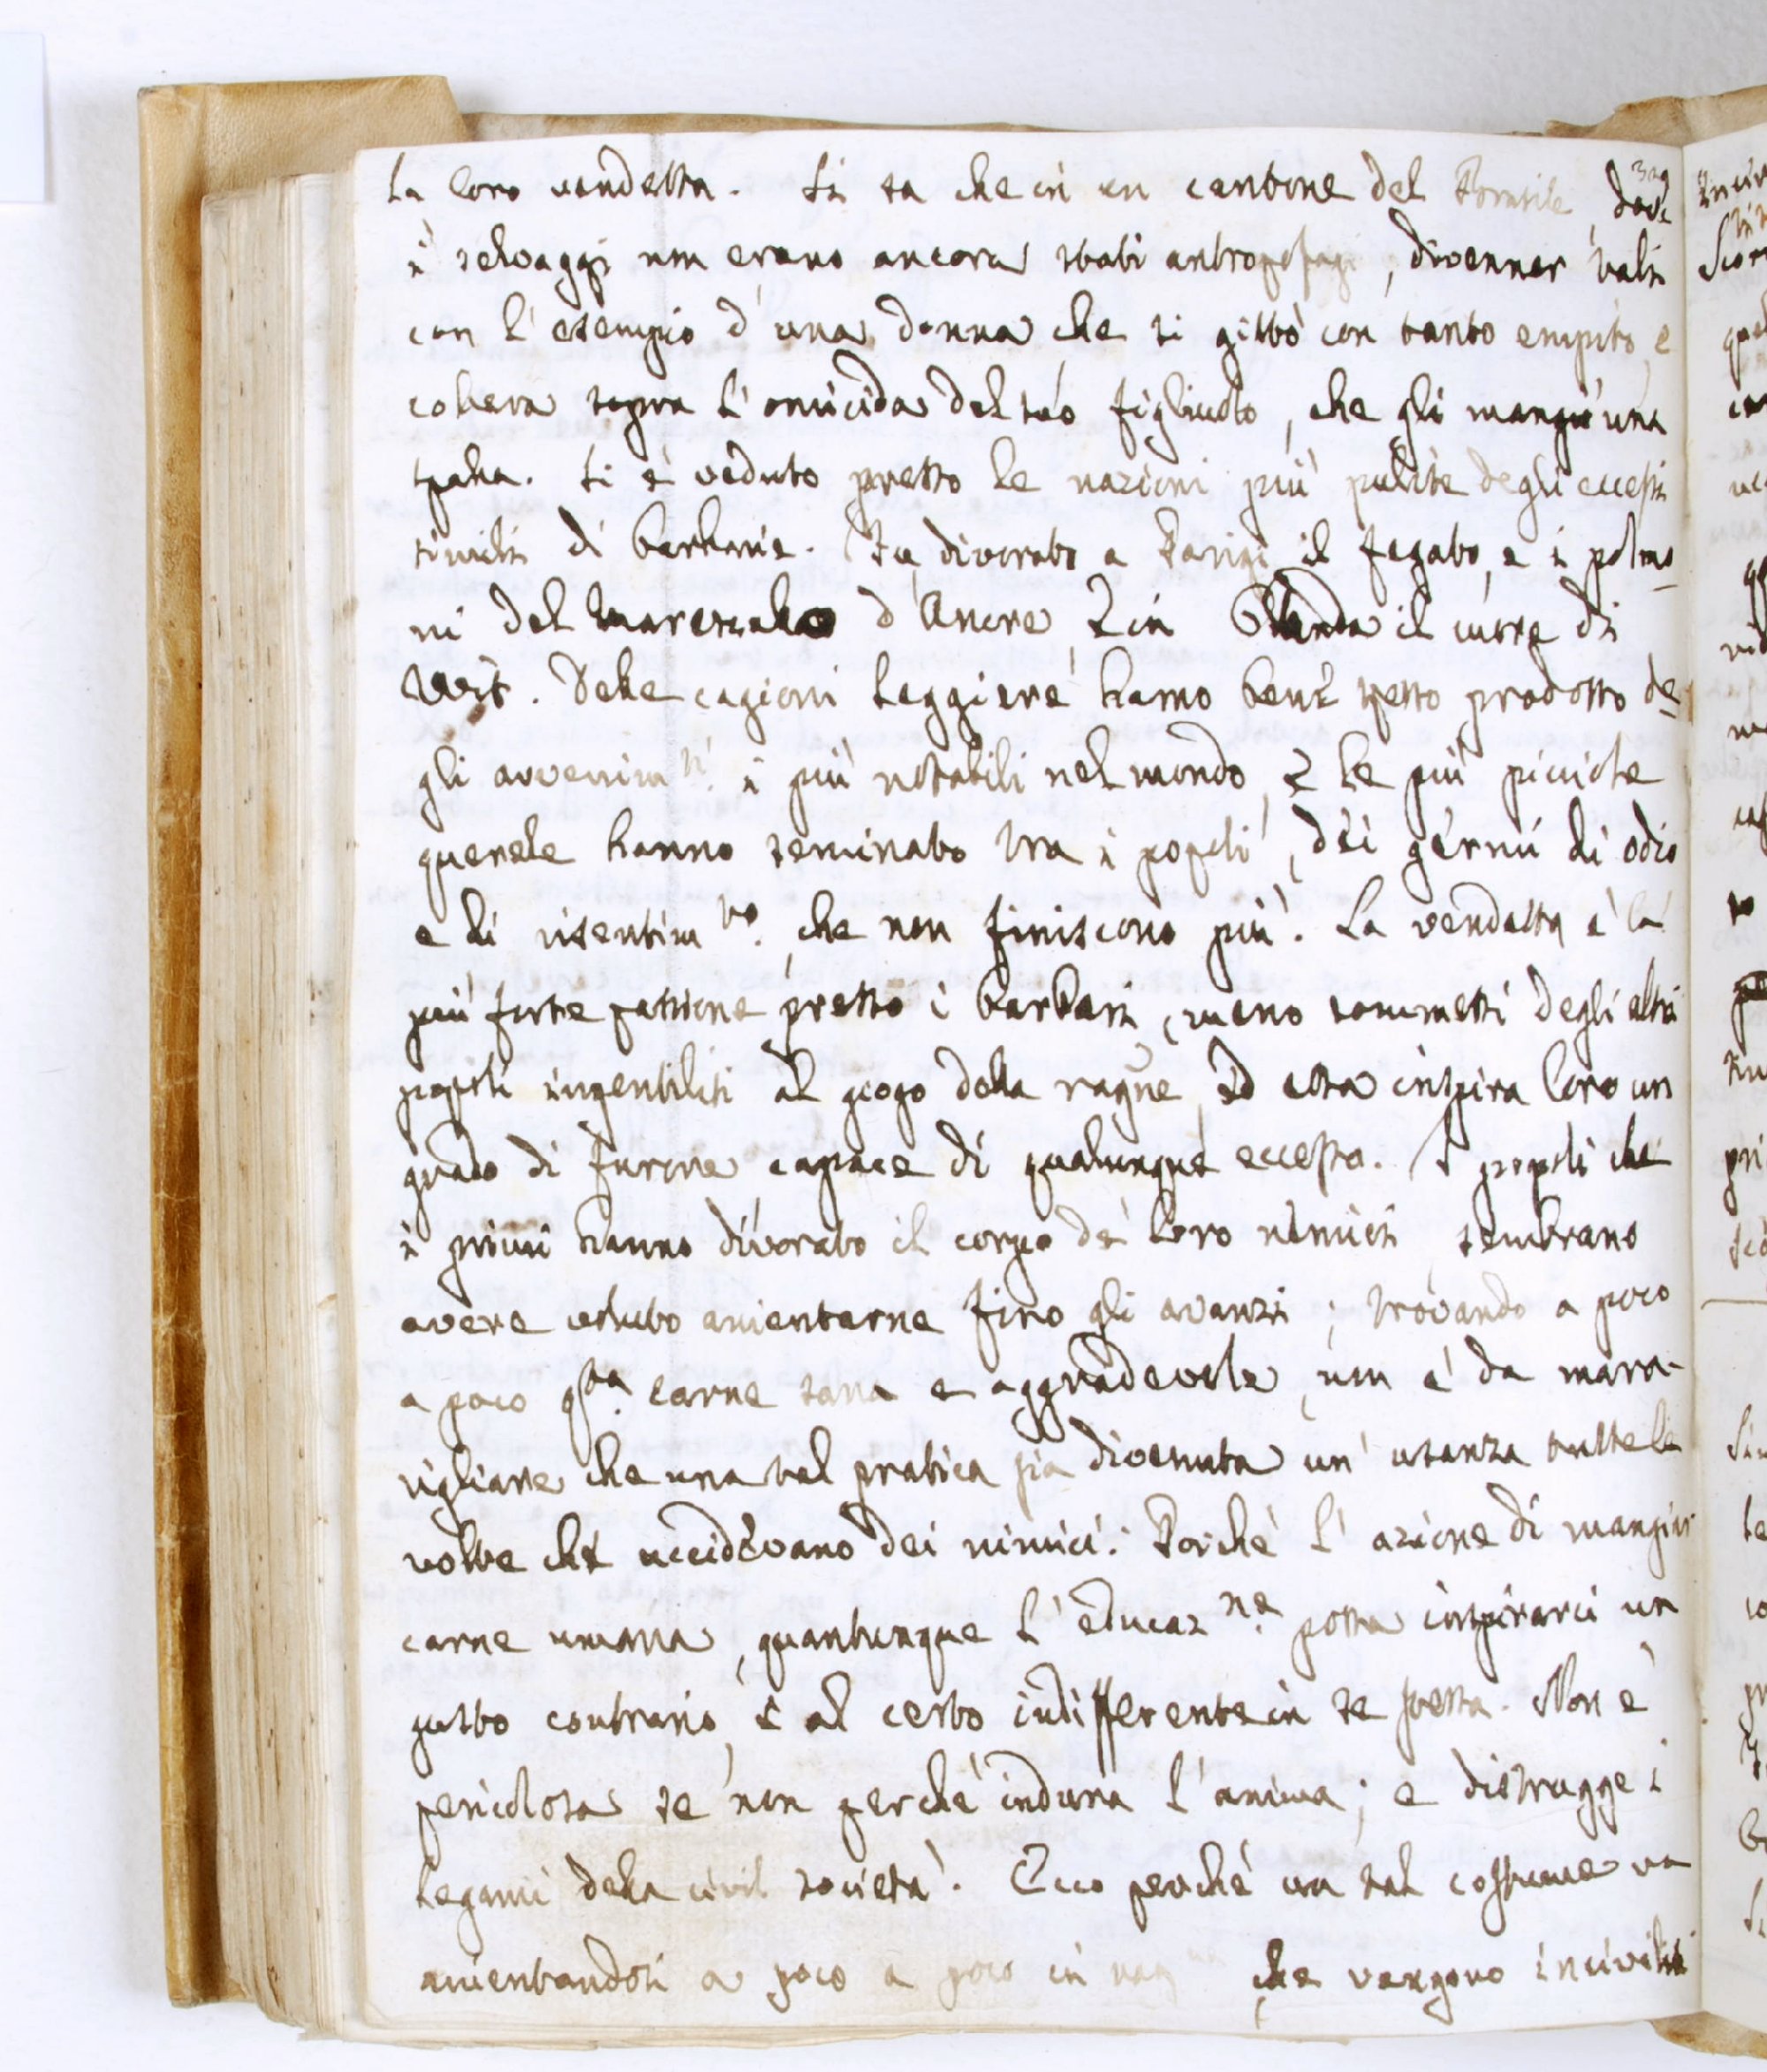 la loro vendetta. Si sa che in un cantone del Brasile, dove
i selvaggi non erano ancora stati antropofagi, divenner tali
con l'esempio d'una donna che si gittò con tanto empito, e
collera sopra l'omicida del suo figliuolo, che gli mangiò una
spalla. Si è veduto presso le nazioni più pulite degli eccessi
simili di barbarie. Fu divorato a Parigi il fegato, e i polmo-
ni del maresciallo d'Ancre & in Olanda il cuore di
Wit. Delle cagioni leggiere hanno bene spesso prodotto de-
gli avvenim.ti i più notabili nel mondo, & le più picciole
querele hanno seminato tra i popoli, dei germi di odio
e di risentim.to che non finiscono più. La vendetta è la
più forte passione presso i barbari, meno sommessi degli altri
popoli ingentiliti al giogo della ragne, ed essa inspira loro un
grado di furore capace di qualunque eccesso. I popoli che
i primi hanno divorato il corpo de' loro nimici sembrano
avere voluto anientarne fino gli avanzi; trovando a poco
a poco qta carne sana e aggradevole, non è da mara-
vigliarse che una tal pratica sia divenuta un' usanza tutte le
volte che uccidevano dei nimici. Poichè l' azione di mangiar
carne umana, quantunque l' educaz.ne possa inspirarci un
gusto contrario, è al certo indifferente in se stessa. Non è
pericolosa se non perchè indura l' anima; e distrugge i
legami della civil società. Ecco perchè un tal costume va
anientandosi a poco a poco in che vengono inciviliti
329